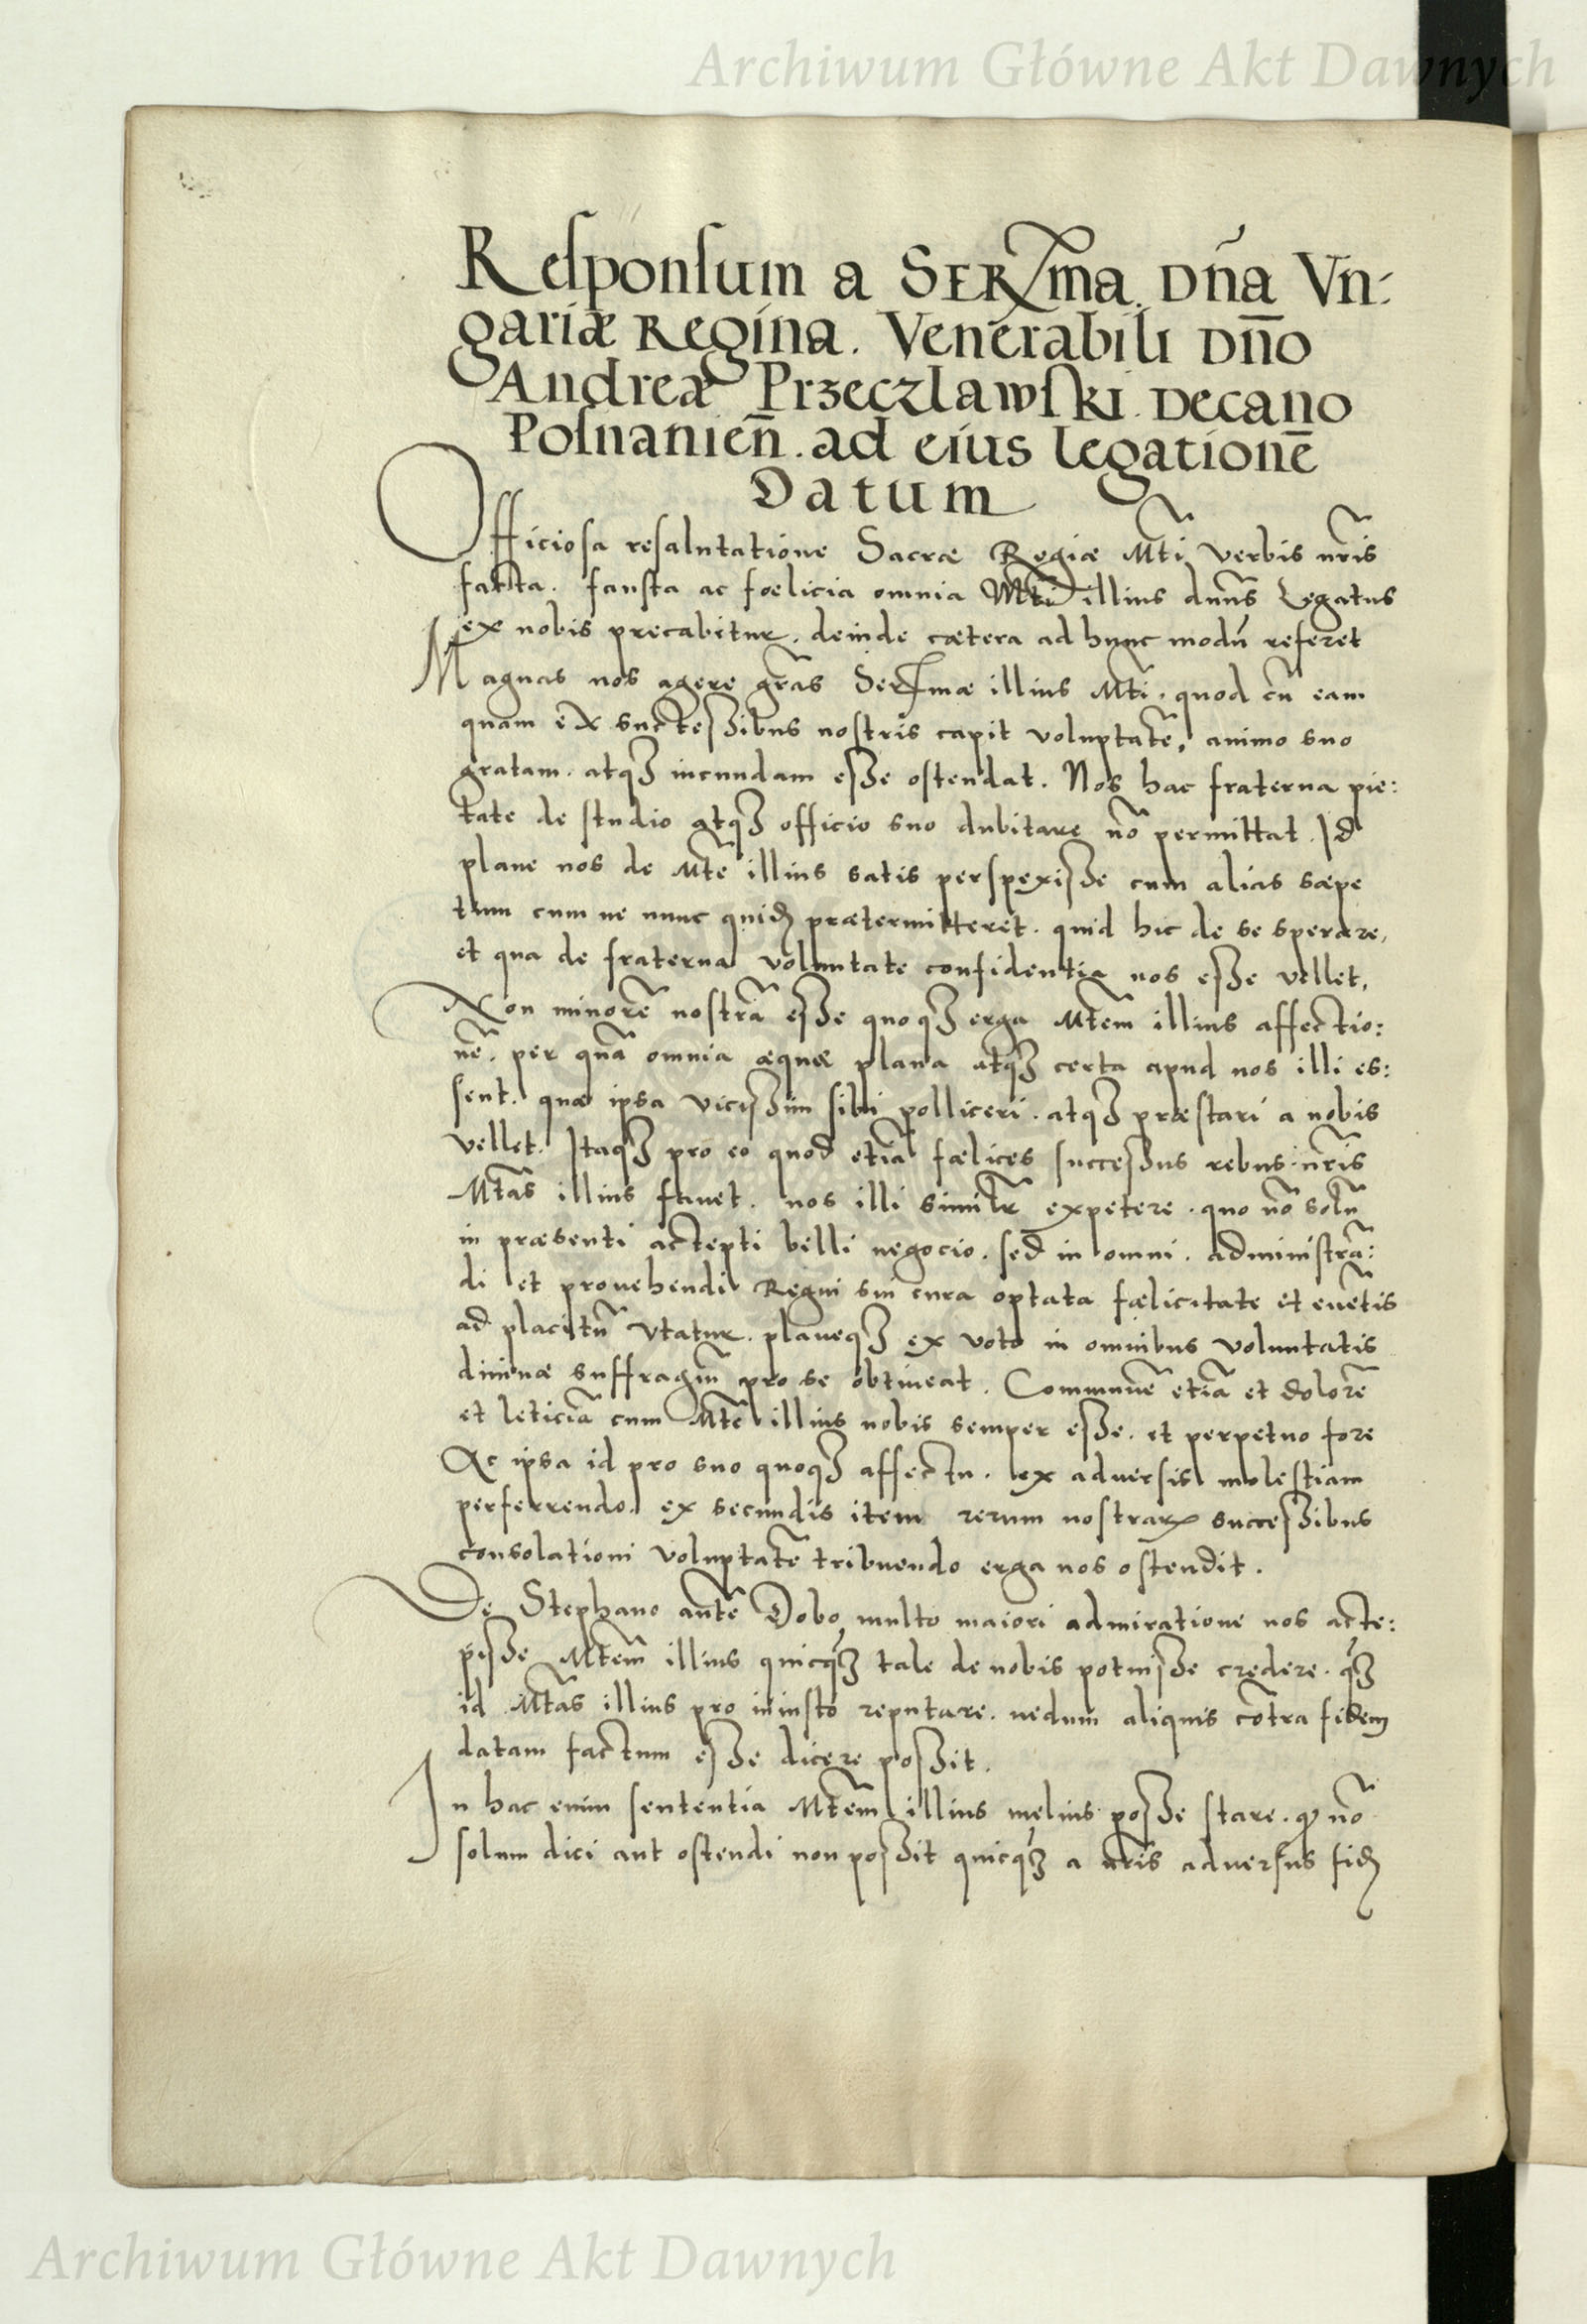 Archiwum Główne Akt Dawnych
Responsum a SERma. Dña Vn:
gariæ Regina. Venerabili Dño
Andreæ Przeczlawski. Decano
Posnanieñ. ad eius legationē
Datum
Officiosa resalutatione Sacræ Regiæ Mti verbis nris
facta. fausta ac fœlicia omnia Mti illius dnns Legatus
ex nobis precabitur. deinde cætera ad hunc modū referet
Magnas nos agere grās Sermæ illius Mti. quod cū eam
quam ex successibus nostris capit voluptatē, animo suo
gratam. atq3 iucundam esse ostendat. Nos hac fraterna pie:
tate de studio atq3 officio suo dubitare nō permittat. Id
plane nos de Mte illius satis perspexisse cum alias sæpe
tum cum ne nunc quidē prætermitteret. quid hic de se sperare,
et qua de fraterna voluntate confidentia nos esse vellet.
Non minorē nostrā esse quoq3 erga Mtem illius affectio:
nē. per quā omnia æquæ plana atq3 certa apud nos illi es:
sent. quæ ipsa vicissim sibi polliceri. atq3 præstari a nobis
vellet. Itaq3 pro eo quod etiā fælices successus rebus nris
Mtas illius favet. nos illi similr expetere. quo nō solū
in præsenti accepti belli negocio. sed in omni. administrā:
di et provehendi Regni sui cura optata fælicitate et evētis
ad placitū vtatur. planeq3 ex voto in omnibus voluntatis
divinæ suffragiū pro se obtineat. Communē etiā et dolorē
et leticiā cum Mte illius nobis semper esse. et perpetuo fore
Ac ipsa id pro suo quoq3 affectu. ex adversis molestiam
perferrendo. ex secundis item rerum nostrarꝝ successibus
consolationi voluptatē tribuendo erga nos ostendit.
De Stephano autē Dobo, multo maiori admiratione nos acce:
pisse Mtem illius quicq3 tale de nobis potuisse credere. q3
id Mtas illius pro iniusto reputare. nedum aliquis cōtra fidem
datam factum esse dicere possit.
In hac enim sententia Mtem illius melius posse stare. qƥ nō
solum dici aut ostendi non possit quicq3 a nris adversus fidē
Archiwum Główne Akt Dawnych